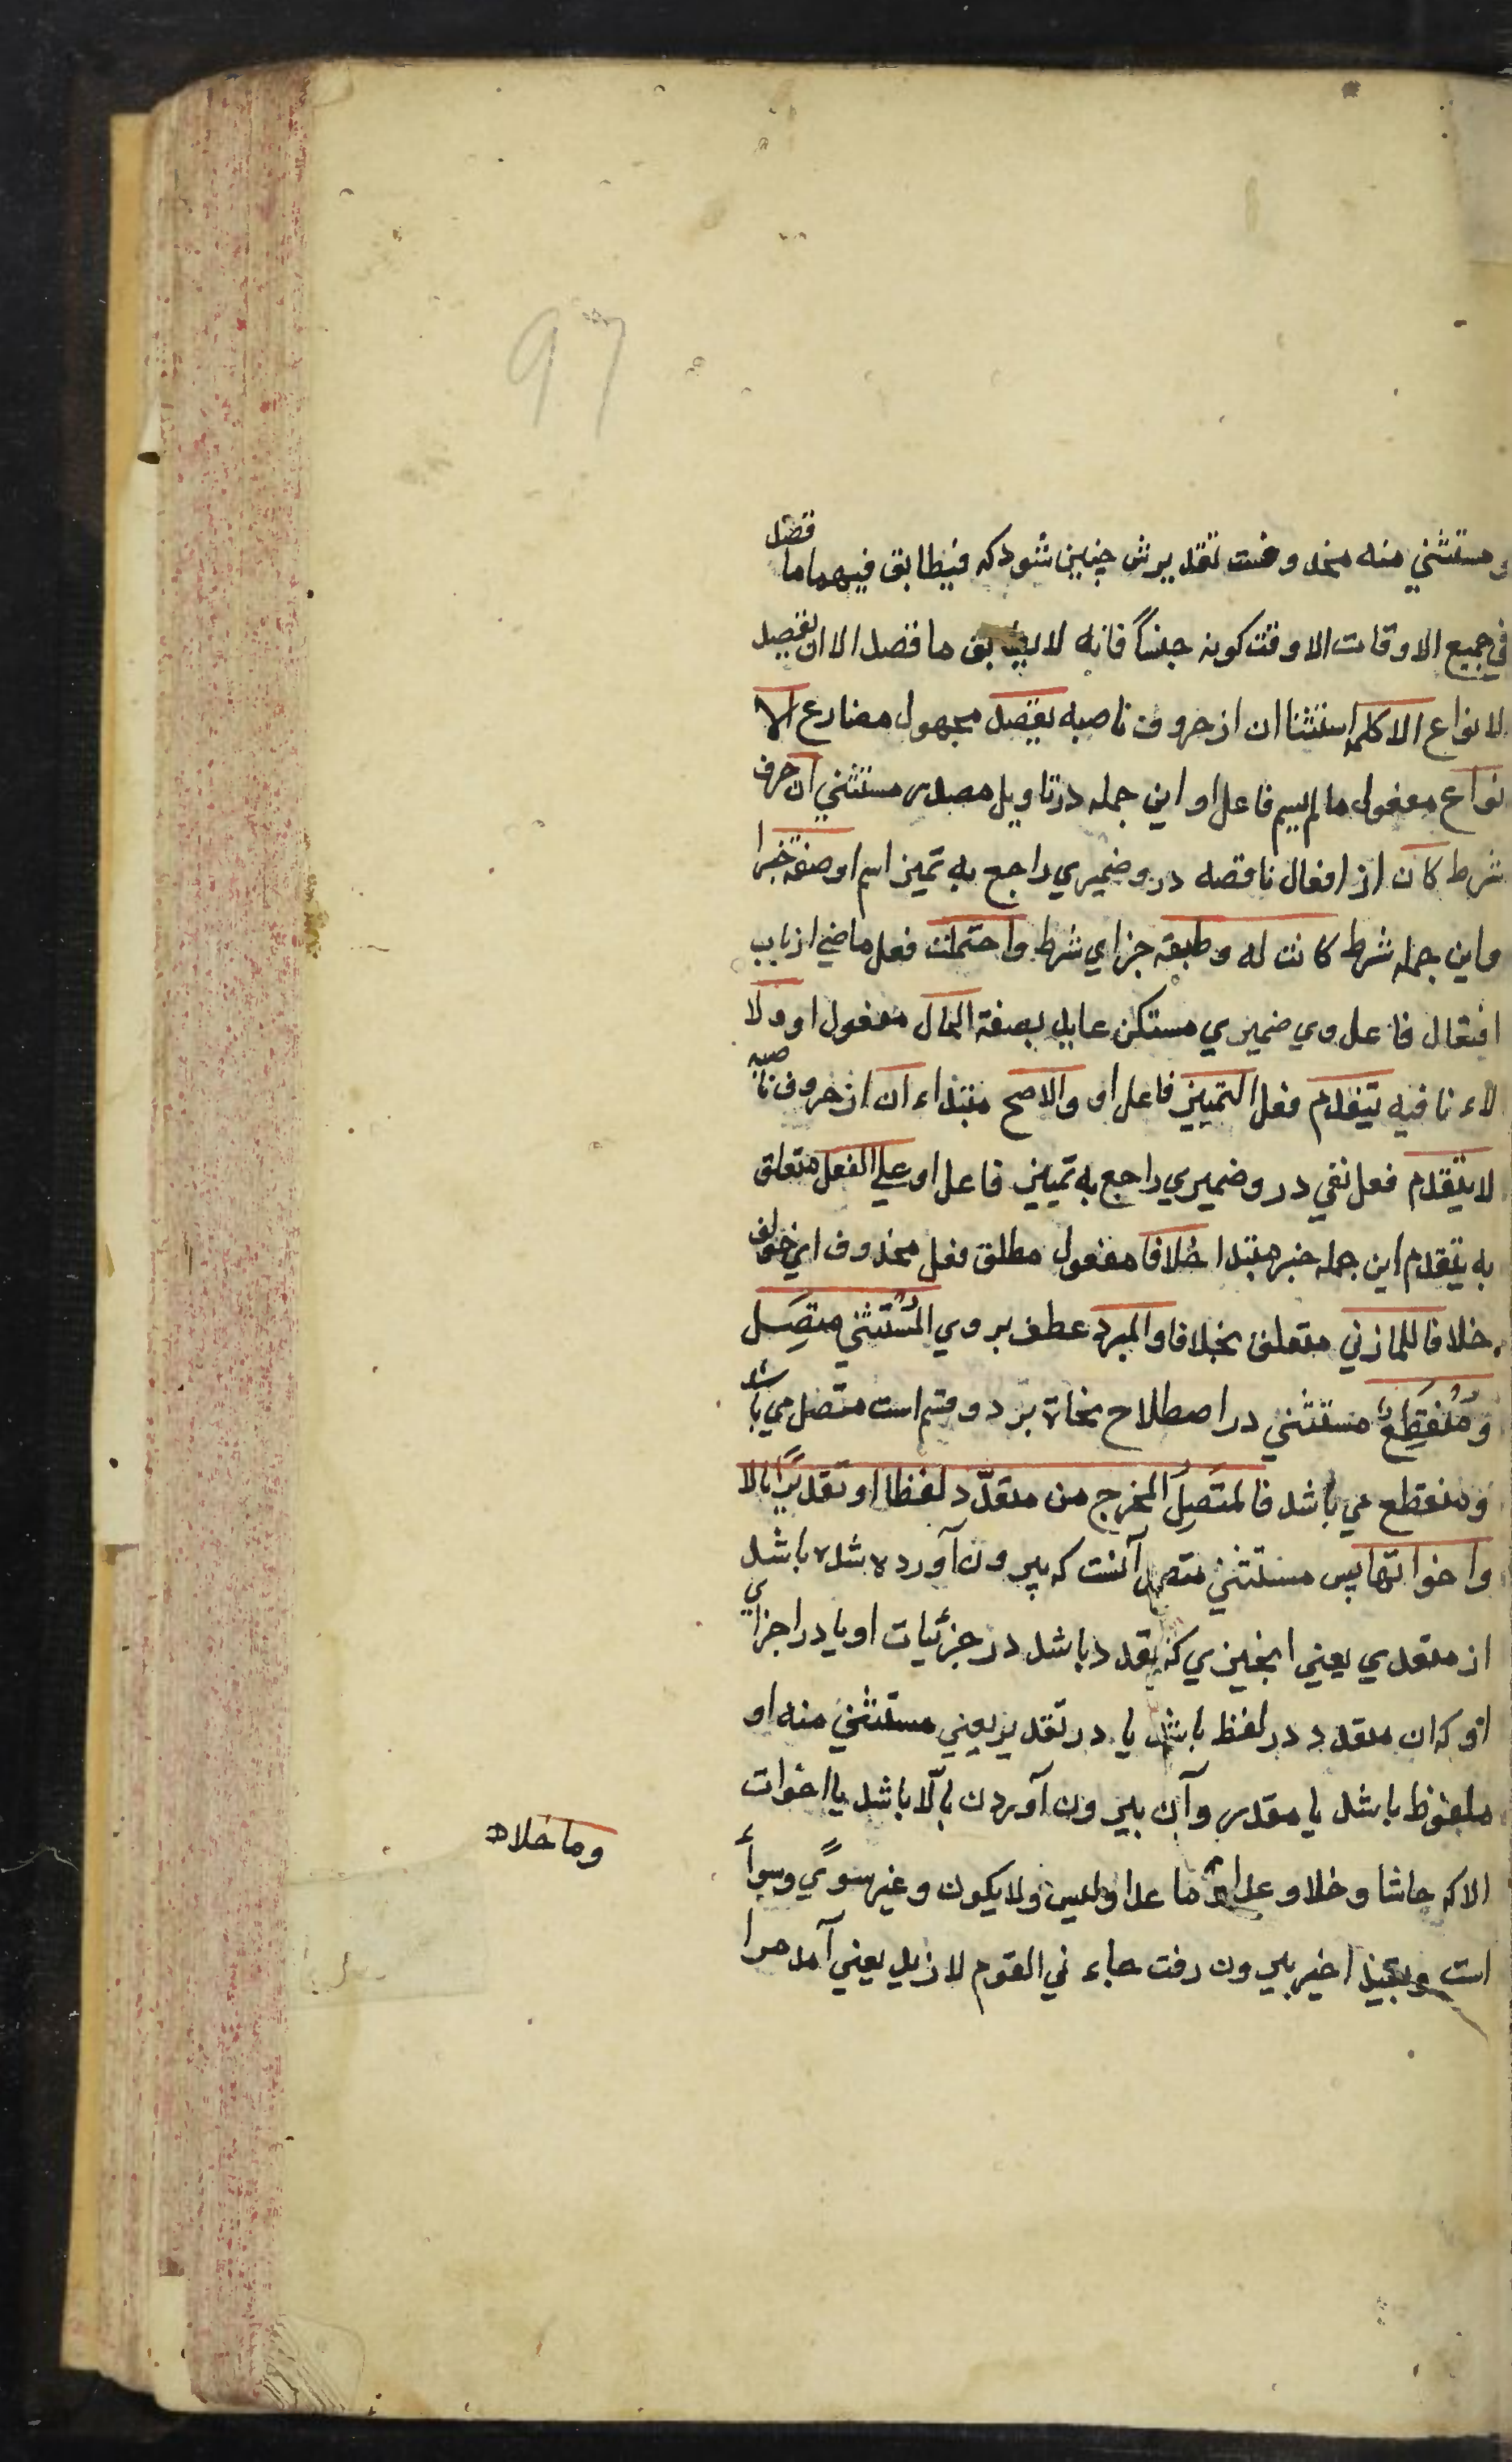 97
و مستثني منه محذوفست تقديرش چنين شود كه فيطابق فيهما ما قصد
في جميع الاوقات الا وقت كونه جنساً فانه لا يطابق ما قصد الا ان يقصد
لانواع الا كلمه استثنا ان از حروف ناصبه يقصد مجهول مضارع الا
نواع مفعول ما لم يسم فاعل او اين جمله در تاويل مصدر مستثني ان حرف
شرط كان از افعال ناقصه درو ضميري راجع به تميز اسم او صفة خبرا
و اين جمله شرط كانت له و طبقه جزاي شرط و احتملت فعل ماضي از باب
افتعال فاعل وي ضميري مستكن عايد بصفة الحال مفعول او و لا
لاء نافيه يتقدم فعل التمييز فاعل او والاصح مبتداء ان از حروف ناصبه
لا يتقدم فعل نفي درو ضميري راجع به تمييز فاعل او علي الفعل متعلق
به يتقدم اين جمله خبر مبتدا خلافا مفعول مطلق فعل محذوف اي خولف
خلافا للمازني متعلق بخلافا والمبرد عطف بروي المُسْتَثني متصِل
و مُنقَطِعٌ مستثني در اصطلاح نحاة بر دو قسم است متصل مي باشد
و منقطع مي باشد فالمتَصِلُ المُخرج من متعدّد لفظا او تقديرًا بالا
و اخواتها پس مستثني متصل آنست كه بيرون آورده شده باشد
از متعددي يعني از چيزي كه تعدد باشد در جزئيات او يا در اجزاي
او كه ان متعدد در لفظ باشد يا در تقدير يعني مستثني منه او
ملفوظ باشد يا مقدر و آن بيرون آوردن بالّا باشد يا اخوات
الا كه حاشا و خلا و عدا و ما عدا و ليس و لا يكون و غير سوًي و سوأ
وما خلا صح
است اخير بيرون رفت جاء ني القوم لا زيد يعني آمد مرا